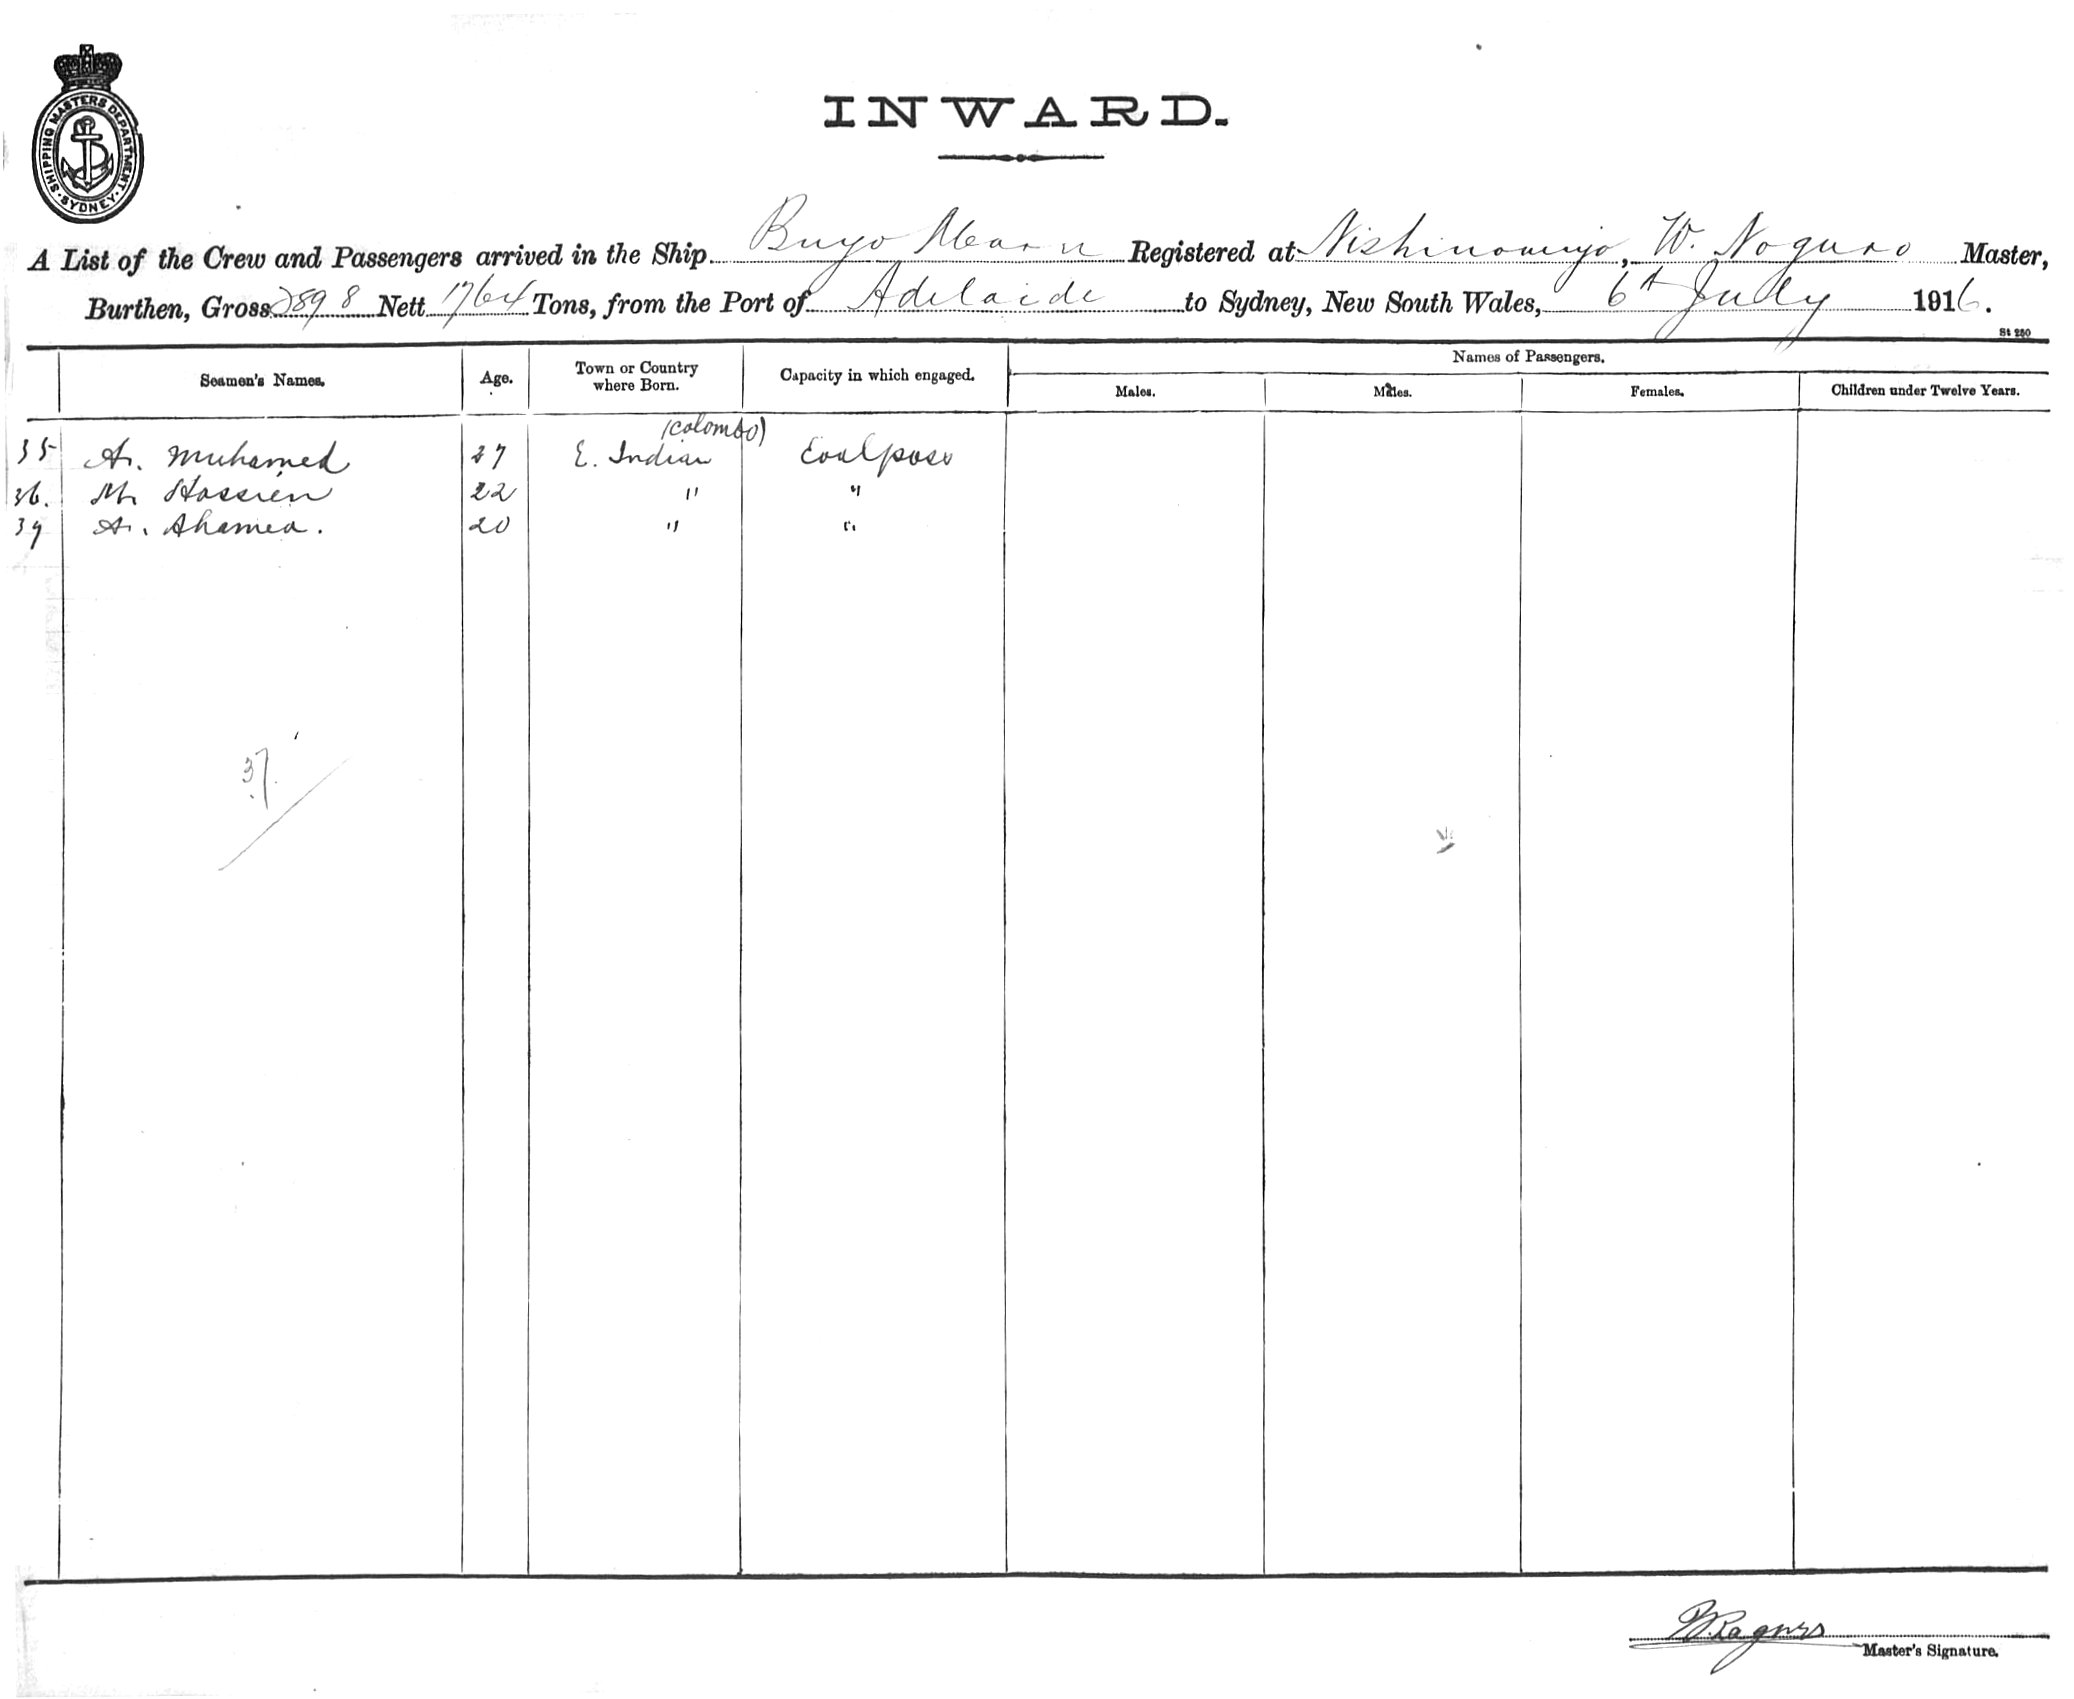 SHIPPING MASTERS DEPARTMENT · SYDNEY ·
INWARD.
A List of the Crew and Passengers arrived in the Ship Buyo Maru Registered at Nishinomiya, W. Noguro Master,
Burthen, Gross 2898 Nett 1764 Tons, from the Port of Adelaide to Sydney, New South Wales, 6th July 1916.
St 280
Seamen's Names. Age. Town or Country where Born. Capacity in which engaged. Names of Passengers.
Males. Males. Females. Children under Twelve Years.
(Colombo)
35 A. Muhamed 27 E. Indian Coalpass
36. M. Hassien 22 " "
37 A. Ahamed. 20 " "
37
Master's Signature.